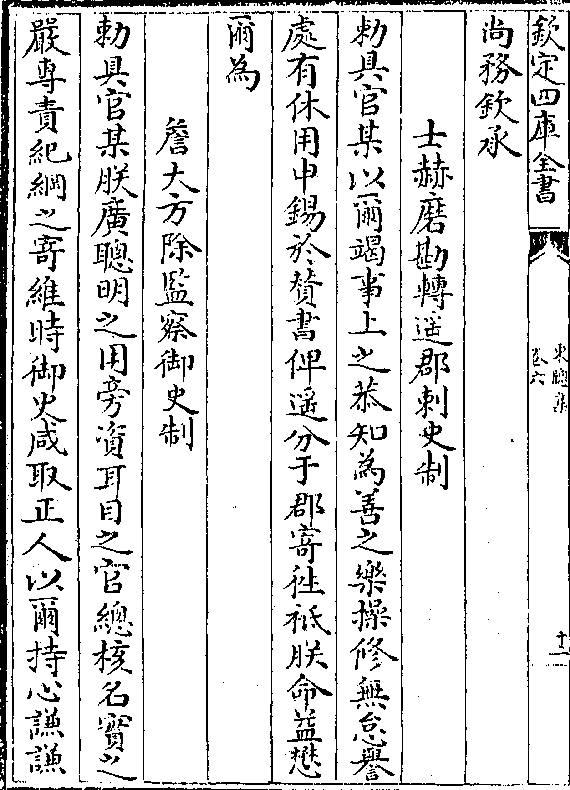 欽定四庫全書
東牕集
卷六
十一
尚務欽承
士赫磨勘轉遥郡刺史制
勅具官某以爾竭事上之恭知為善之樂操修無怠譽
處有休用申錫於贊書俾遥分于郡寄徃祗朕命益懋
爾為
詹大方除監察御史制
勅具官某朕廣聰明之用旁資耳目之官總核名實之
嚴専責紀綱之寄維時御史咸取正人以爾持心謙謙